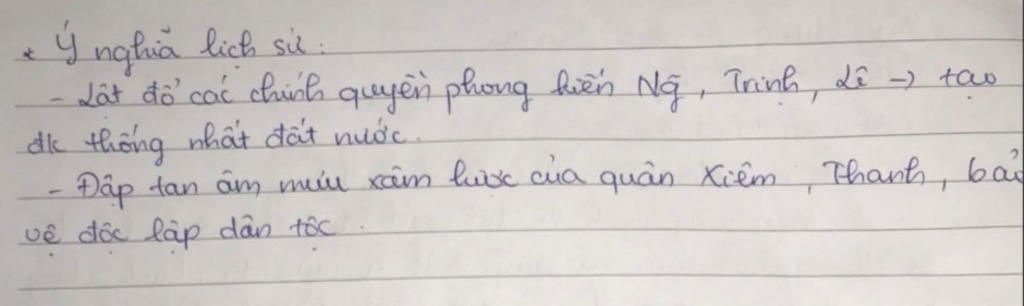 * Ý nghĩa lịch sử:
- Lật đổ các chính quyền phong kiến Ng̃, Trịnh, Lê → tạo
đk thống nhất đất nước.
- Đập tan âm mưu xâm lược của quân Xiêm, Thanh, bảo
vệ độc lập dân tộc.